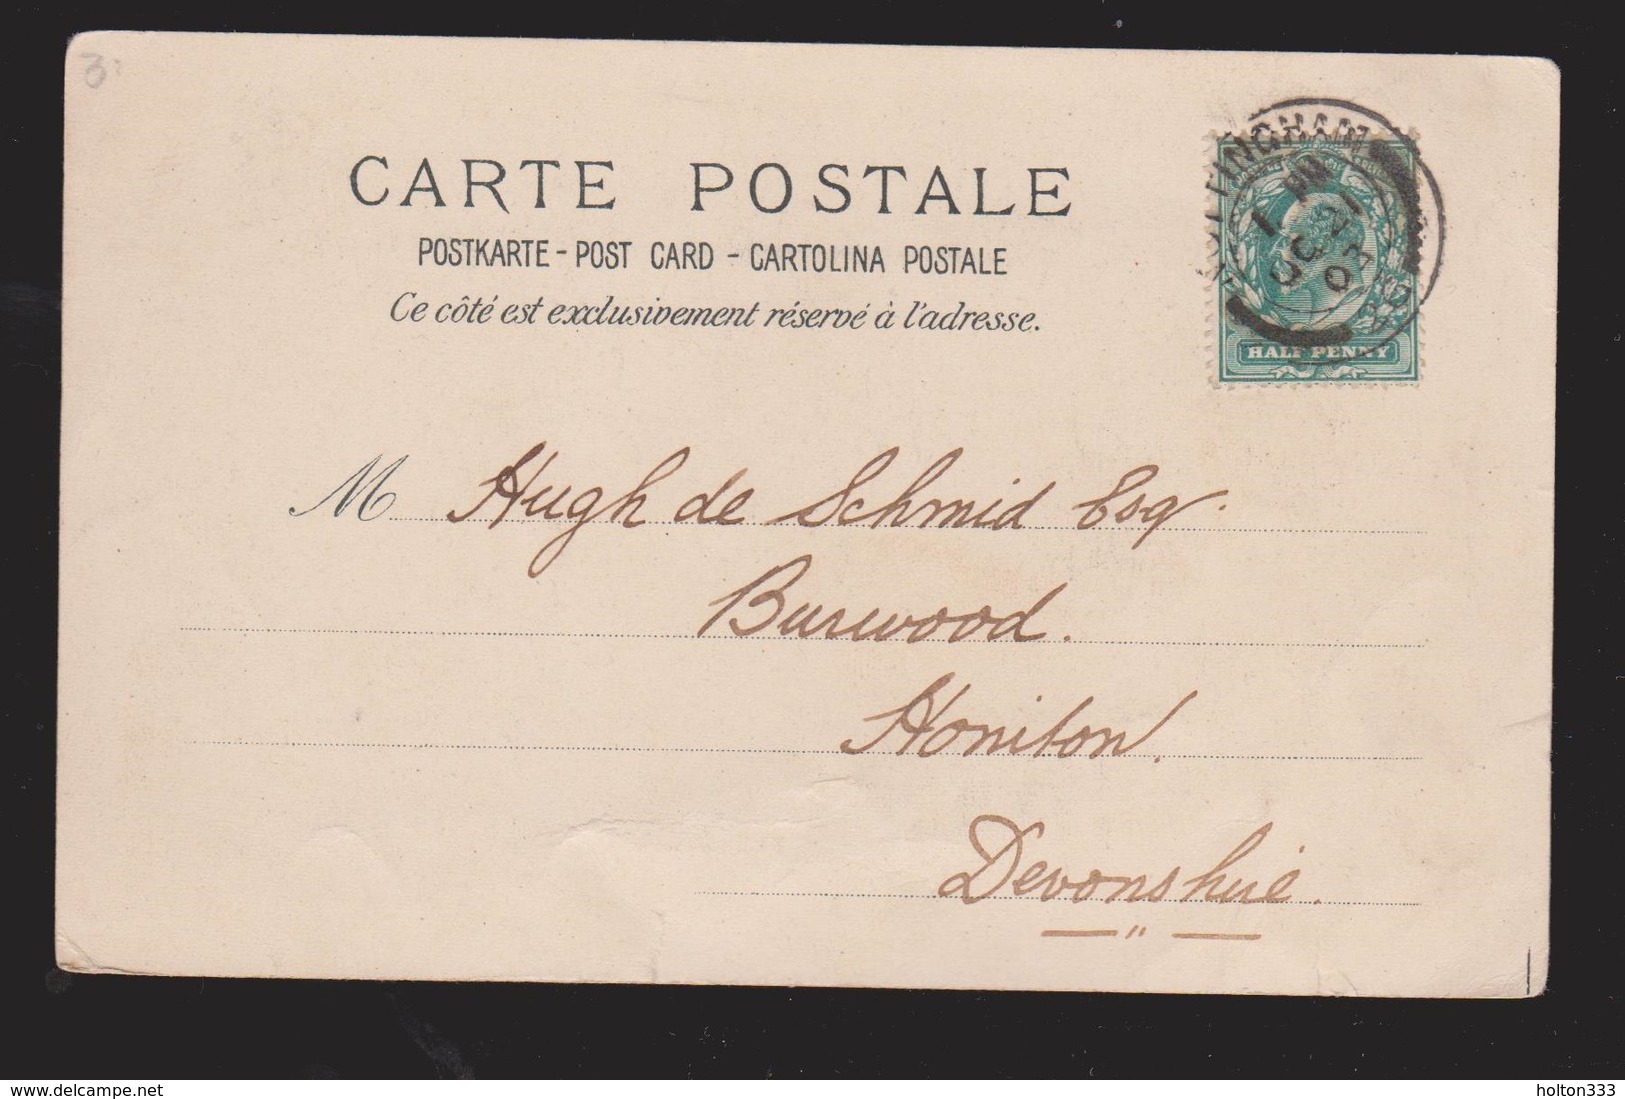 3
CARTE POSTALE
POSTKARTE - POST CARD - CARTOLINA POSTALE
Ce côté est exclusivement réservé à l'adresse.
HALF PENNY
M Hugh de Schmid Esq.
Burwood.
Honiton.
Devonshire.
holton333
www.delcampe.net